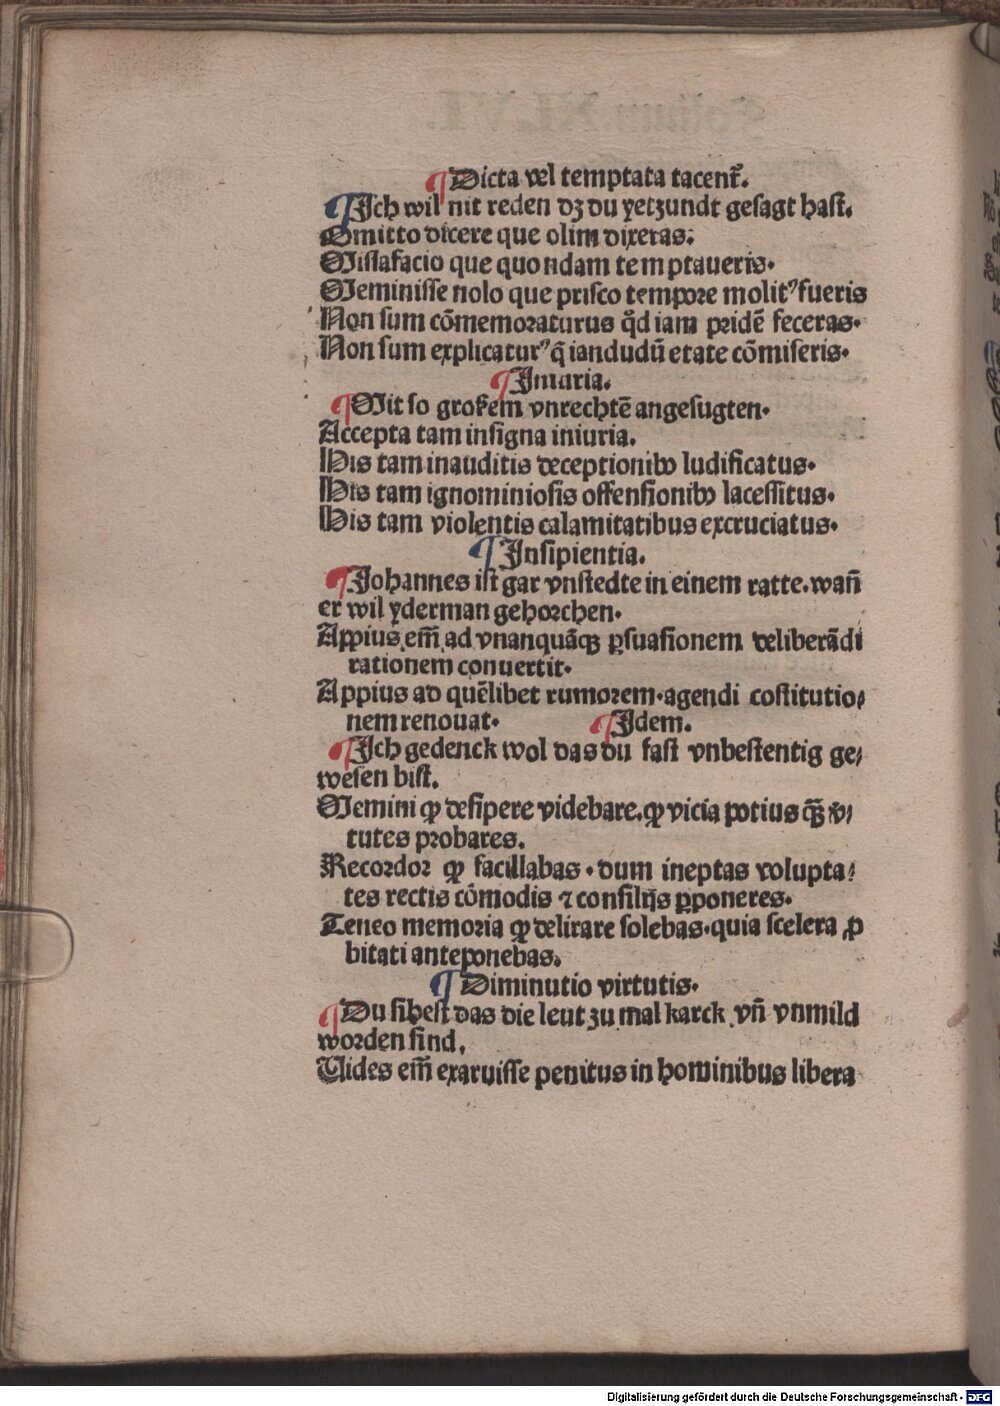 ¶Dicta vel temptata tacent᷑.
¶Ich wil nit reden dꝫ du yetzundt gesagt hast.
Omitto dicere que olim dixeras.
Missafacio que quondam temptaueris.
Meminisse nolo que prisco tempore molitꝰ fueris
Non sum cōmemoraturus qd̄ iam pridē feceras.
Non sum explicaturꝰ q̄ iandudū etate cōmiseris.
¶Iniuria.
¶Mit so grossem vnrechtē angefugten.
Accepta tam insigna iniuria.
His tam inauditis deceptionibꝰ ludificatus.
His tam ignominiosis offensionibꝰ lacessitus.
His tam violentis calamitatibus excruciatus.
¶Insipientia.
¶Johannes ist gar vnstedte in einem ratte. wañ
er wil yderman gehorchen.
Appius em̄ ad vnanquāqꝫ ꝑsuasionem deliberādi
rationem conuertit.
Appius ad quēlibet rumorem. agendi costitutio⸗
nem renouat. ¶Idem.
¶Ich gedenck wol das du fast vnbestentig ge⸗
wesen bist.
Memini ꝙ desipere videbare. ꝙ vicia potius qꝫ̄ v̄⸗
tutes probares.
Recordor ꝙ facillabas. dum ineptas volupta⸗
tes rectis cōmodis ⁊ consilijs p̄poneres.
Teneo memoria ꝙ delirare solebas. quia scelera ꝓ
bitati anteponebas.
¶Diminutio virtutis.
¶Du sihest das die leut zu mal karck vñ vnmild
worden sind.
Vides em̄ exaruisse penitus in hominibus libera
Digitalisierung gefördert durch die Deutsche Forschungsgemeinschaft - DFG